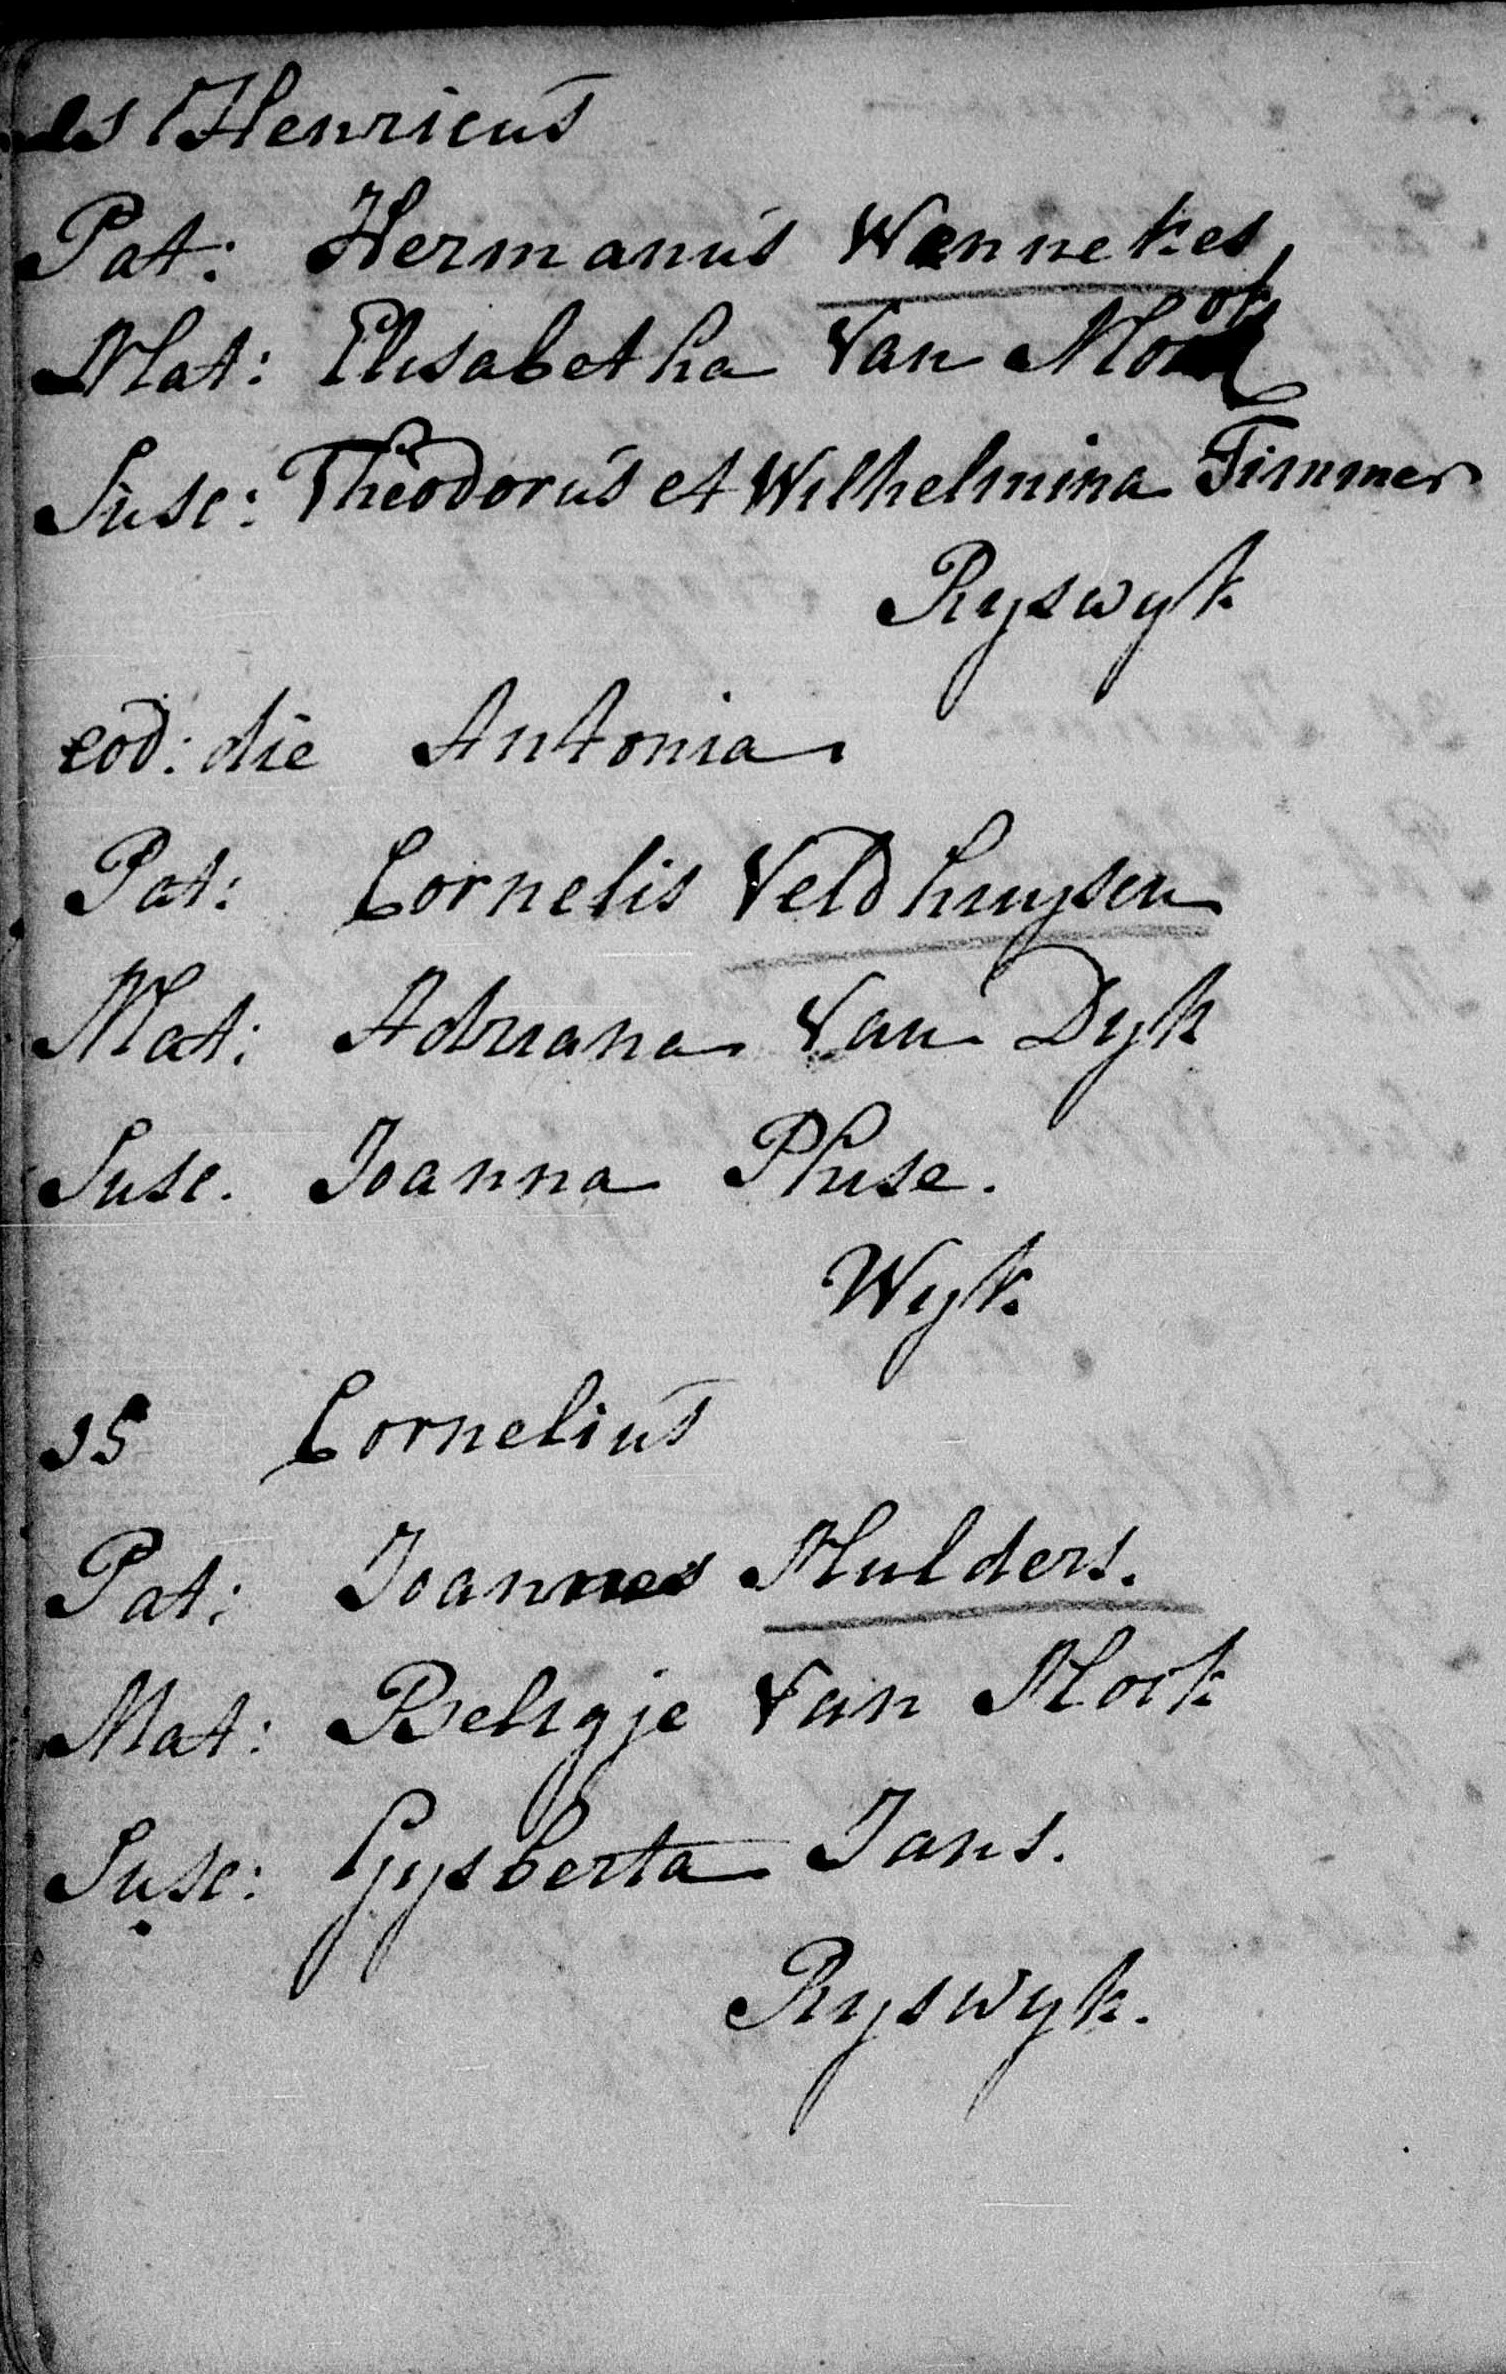 Henricus
Pat: Hermanus Wennekes
Mat: Elisabetha Van Mook
Susc: Theodorus et Wilhelmina Timmer
Ryswyk
eod: die Antonia
Pat: Cornelis Veldhuysen
Mat: Adriana Van Dyk
Susc. Joanna Pluse.
Wyk
15 Cornelius
Pat: Joannes Mulders.
Mat: Beligje Van Mook
Susc: Gysberta Jans.
Ryswyk.